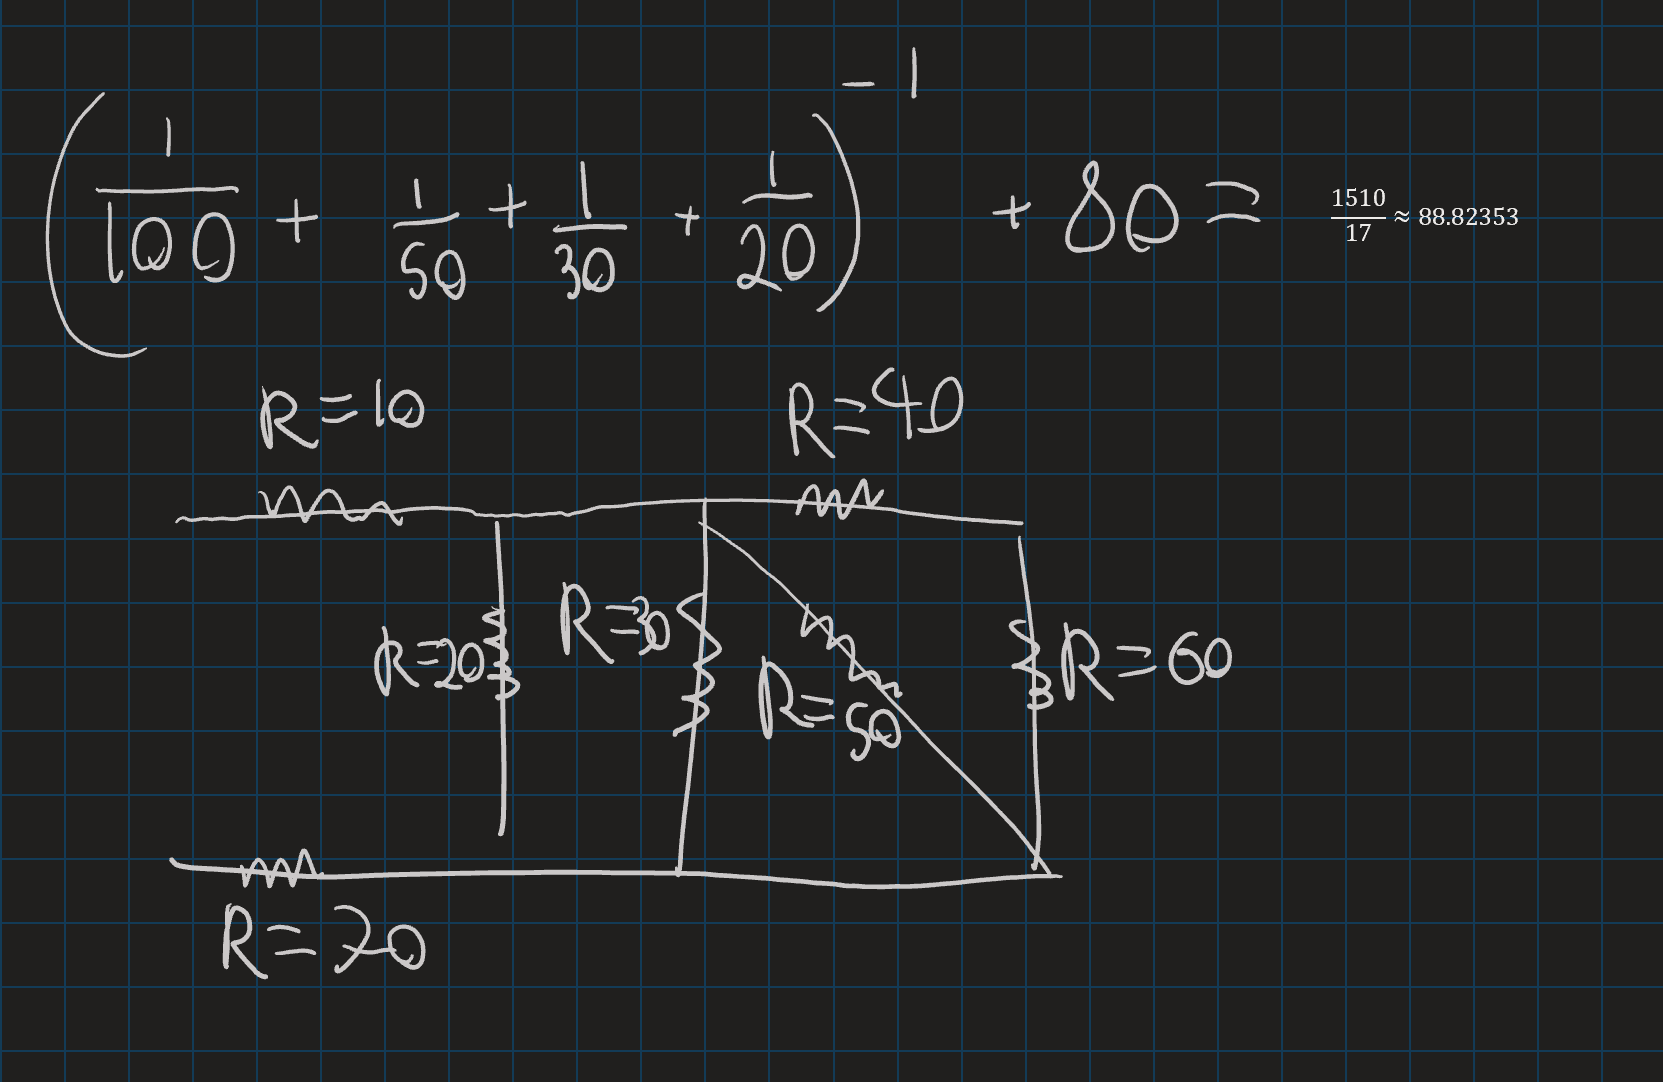 (1/100 + 1/50 + 1/30 + 1/20)^-1 + 80 = 1510/17 ≈ 88.82353
R=10 R=40
R=20 R=30 R=50 R=60
R=70